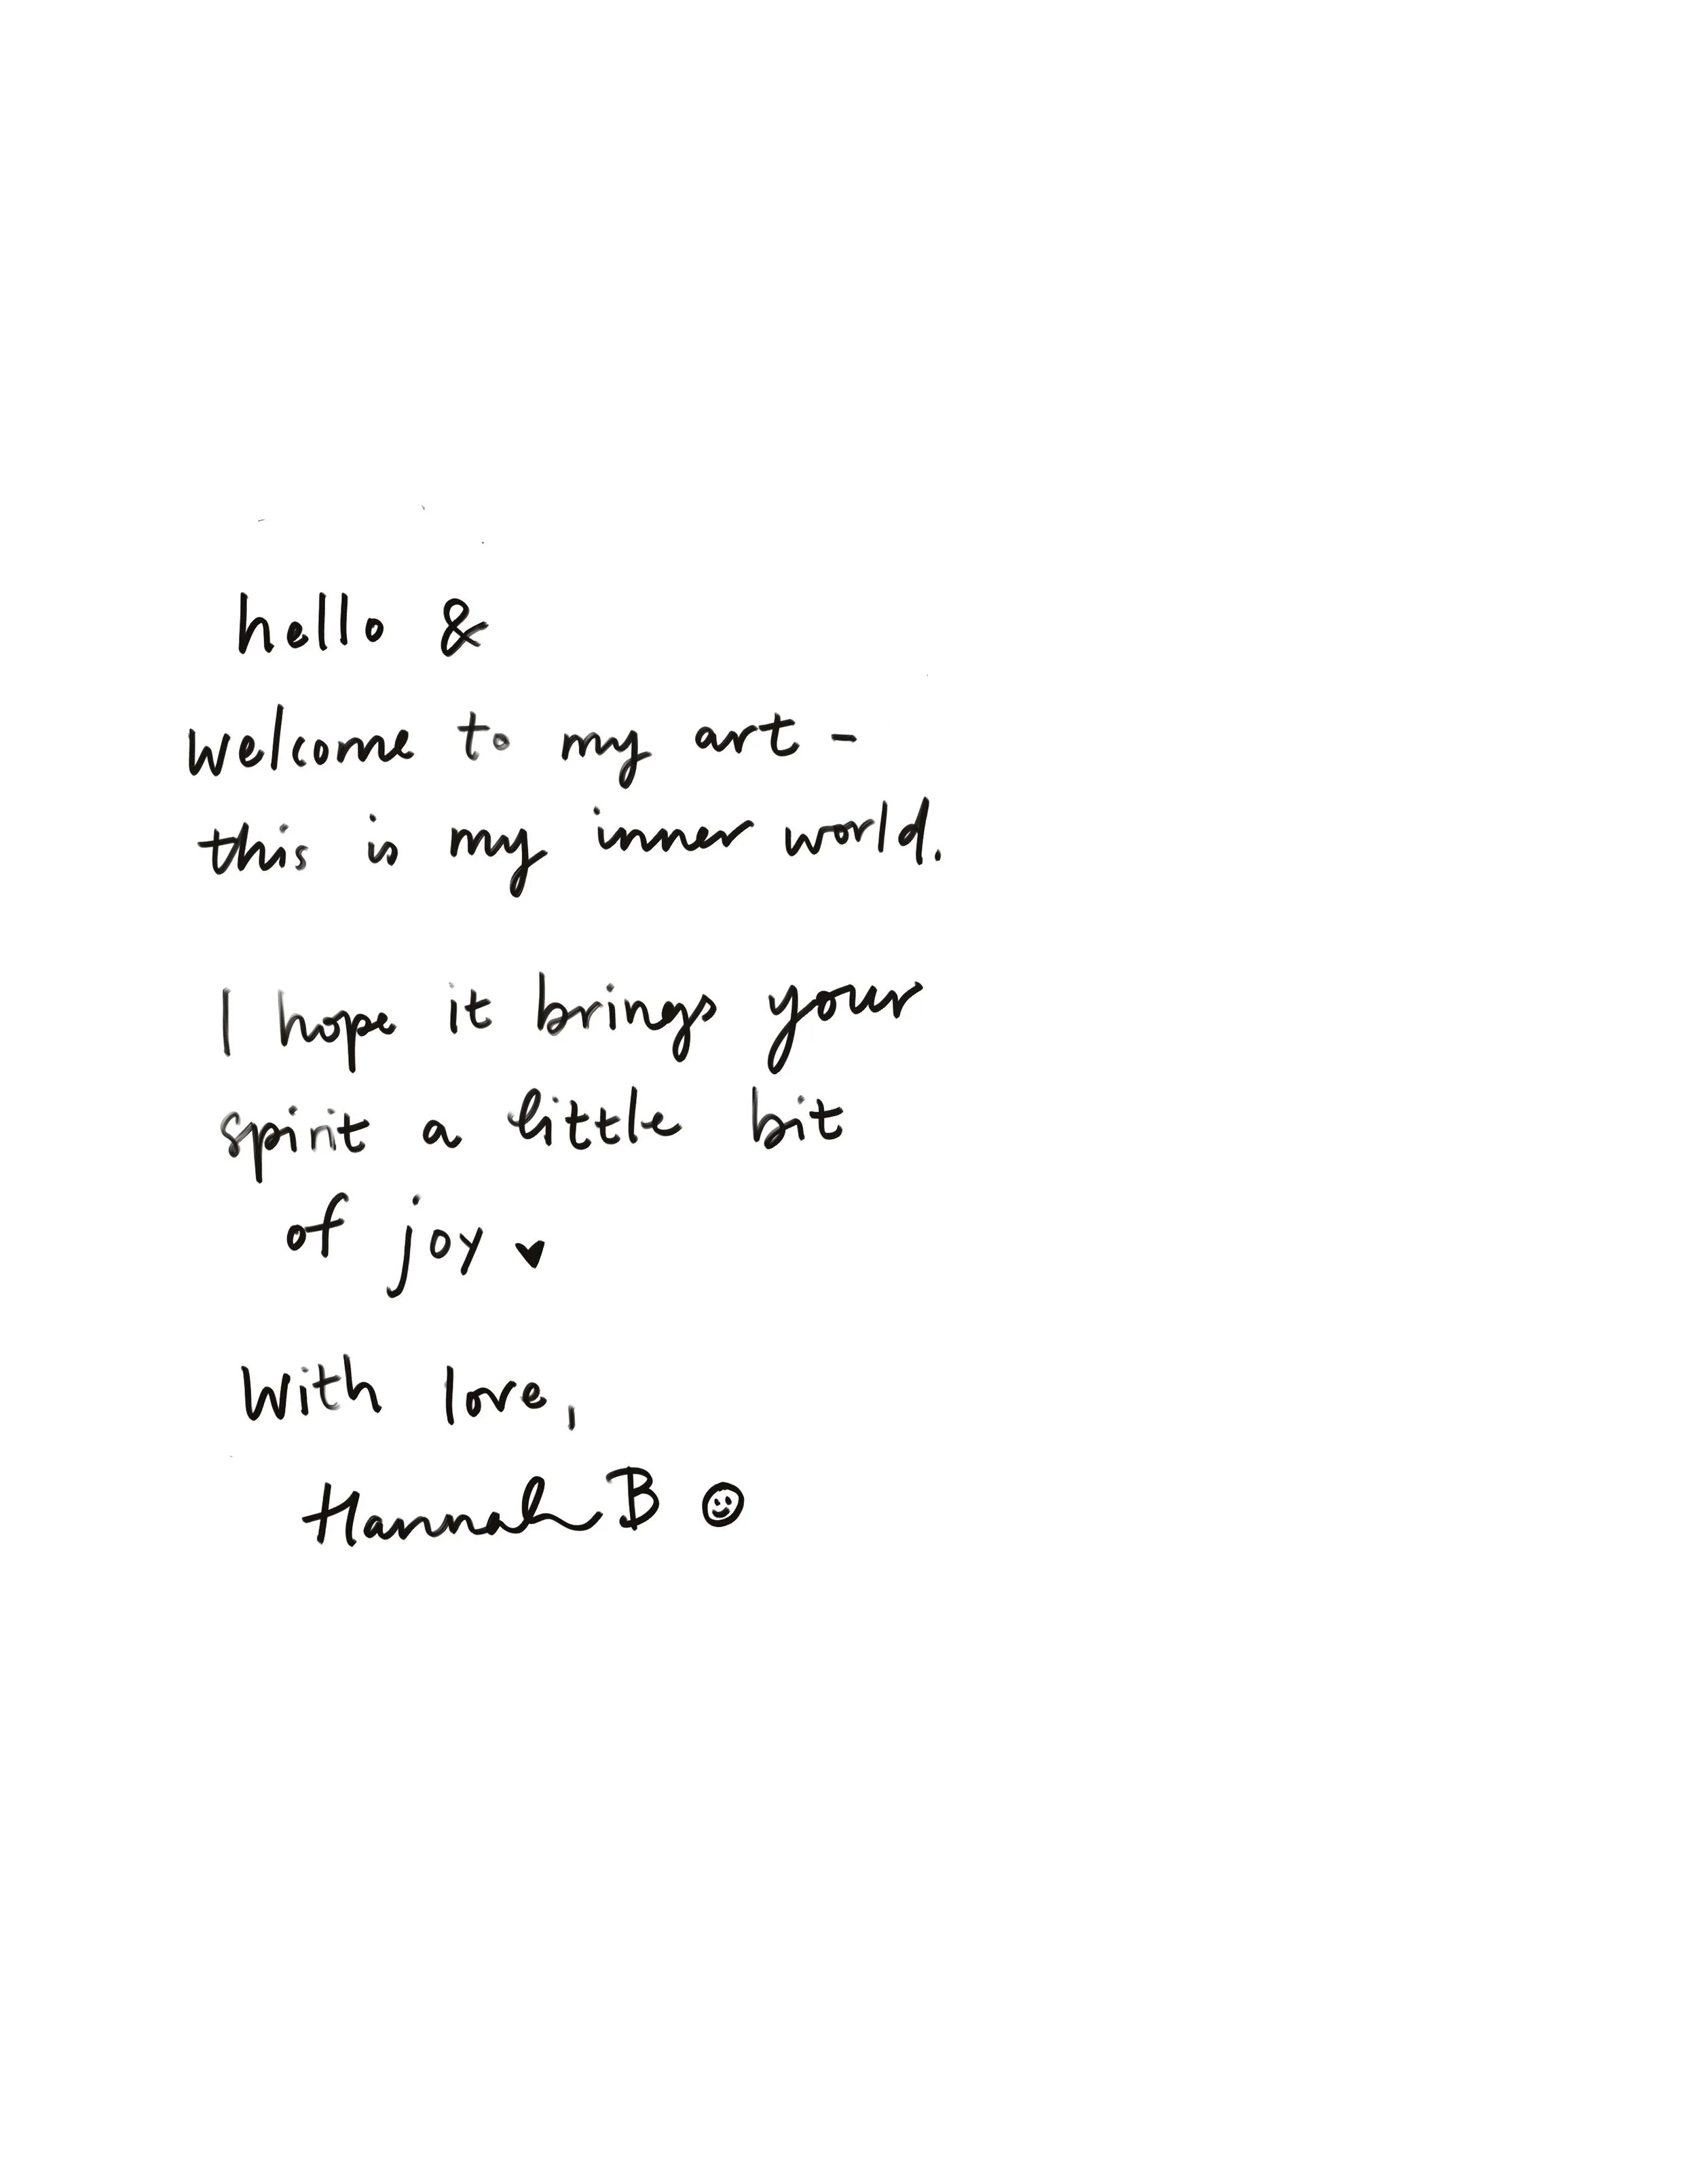 hello &
welcome to my art -
this is my inner world.
I hope it brings your
spirit a little bit
of joy ♥
With love,
Hannah B ☺